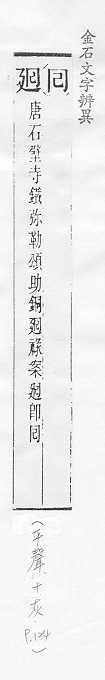 金石文字辨異
囘廻
唐石壁寺鐵弥勒頌助銅廻祿案廻即囘
(平聲十灰 P.124)